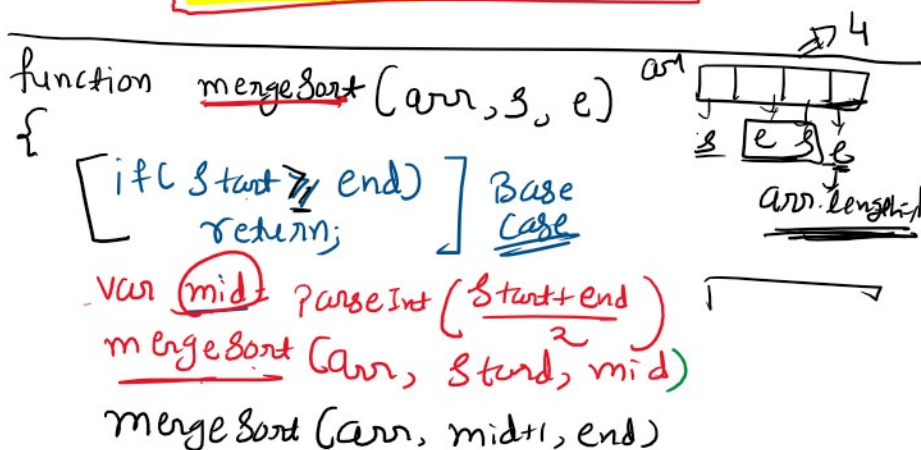 function mergeSort (arr, s, e)
{
if( start >= end)
return;
Base
Case
var mid = parseInt ( start+end
2 )
mergeSort (arr, Stard, mid)
mergeSort (arr, mid+1, end)
4
arr
s e s e
arr.length-1